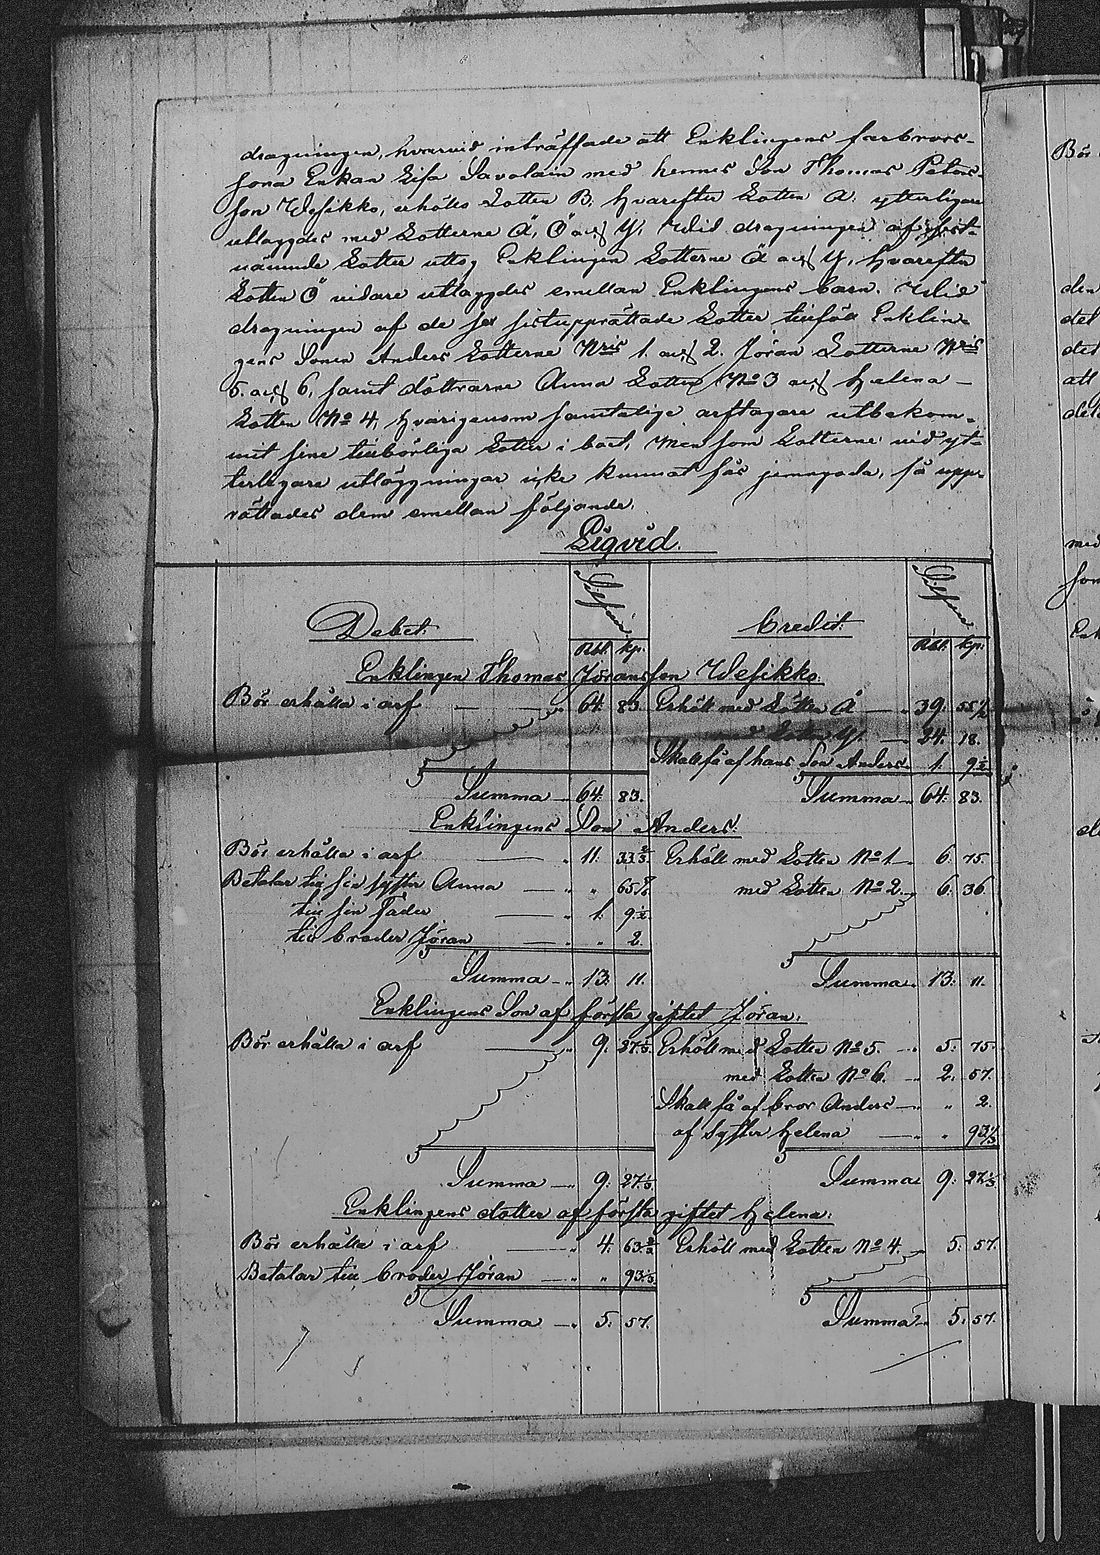 dragningen, hvarvid inträffade att Enklingens farbrors-
sons Enkan Lisa Savolain med hennes Son Thomas Peters-
son Wesikko, erhölls Lotten B. hvarefter Lotten A. ytterligare
utlaggdes med Lotterne Å, Ö och Y. Wid dragningen af sist-
nämnde Lotter uttog Enklingen Lotterne Å och Y, hvarefter
Lotten Ö vidare utlaggdes emellan Enklingens barn. Wid
dragningen af de sex sistupprättade Lotter tillföll Enklin-
gens Sonen Anders Lotterne Nris 1. och 2. Jöran Lotterne Nris
5. och 6, samt döttrarne Anna Lotten No 3 och Helena —
Lotten No 4, hvarigenom samtelige arftagare utbekom-
mit sine tillbörliga Lotter i boet, Men som Lotterne vid yt-
terligare utläggningar icke kunnat fås jemngoda, så uppr-
rättades dem emellan följande.
Liqvid.
Debet. Silfver Credit. Silfver
Rbl. Kp. Rbl. Kp.
Enklingen Thomas Jöransson Wesikko.
Bör erhålla i arf — 64. 83. Erhöll med Lotten Å — 39. 55 1/2
med Lotten Y. — 24. 18.
Skall få af hans Son Anders 1. 9 1/2
Summa — 64. 83. Summa — 64. 83.
Enklingens Son Anders.
Bör erhålla i arf — 11. 33 2/3 Erhöll med Lotten No 1 — 6. 75.
Betalar till sin syster Anna — " 65 med Lotten No 2. — 6. 36
till sin Fader — 1. 9 1/2
till broder Jöran — " 2.
Summa — 13. 11. Summa — 13. 11.
Enklingens Son af första giftet Jöran.
Bör erhålla i arf — 9. 27 1/3 Erhöll med Lotten No 5. — 5. 75
med Lotten No 6. — 2. 57.
Skall få af bror Anders — " 2.
af Syster Helena — " 93 1/3
Summa — 9. 27 1/3 Summa 9. 27 1/3
Enklingens dotter af första giftet Helena.
Bör erhålla i arf — 4. 63 2/3 Erhöll med Lotten No 4. — 5. 57.
Betalar till broder Jöran — " 93 1/3
Summa — 5. 57. Summa — 5. 57.
Bör
den
det
det
att
med